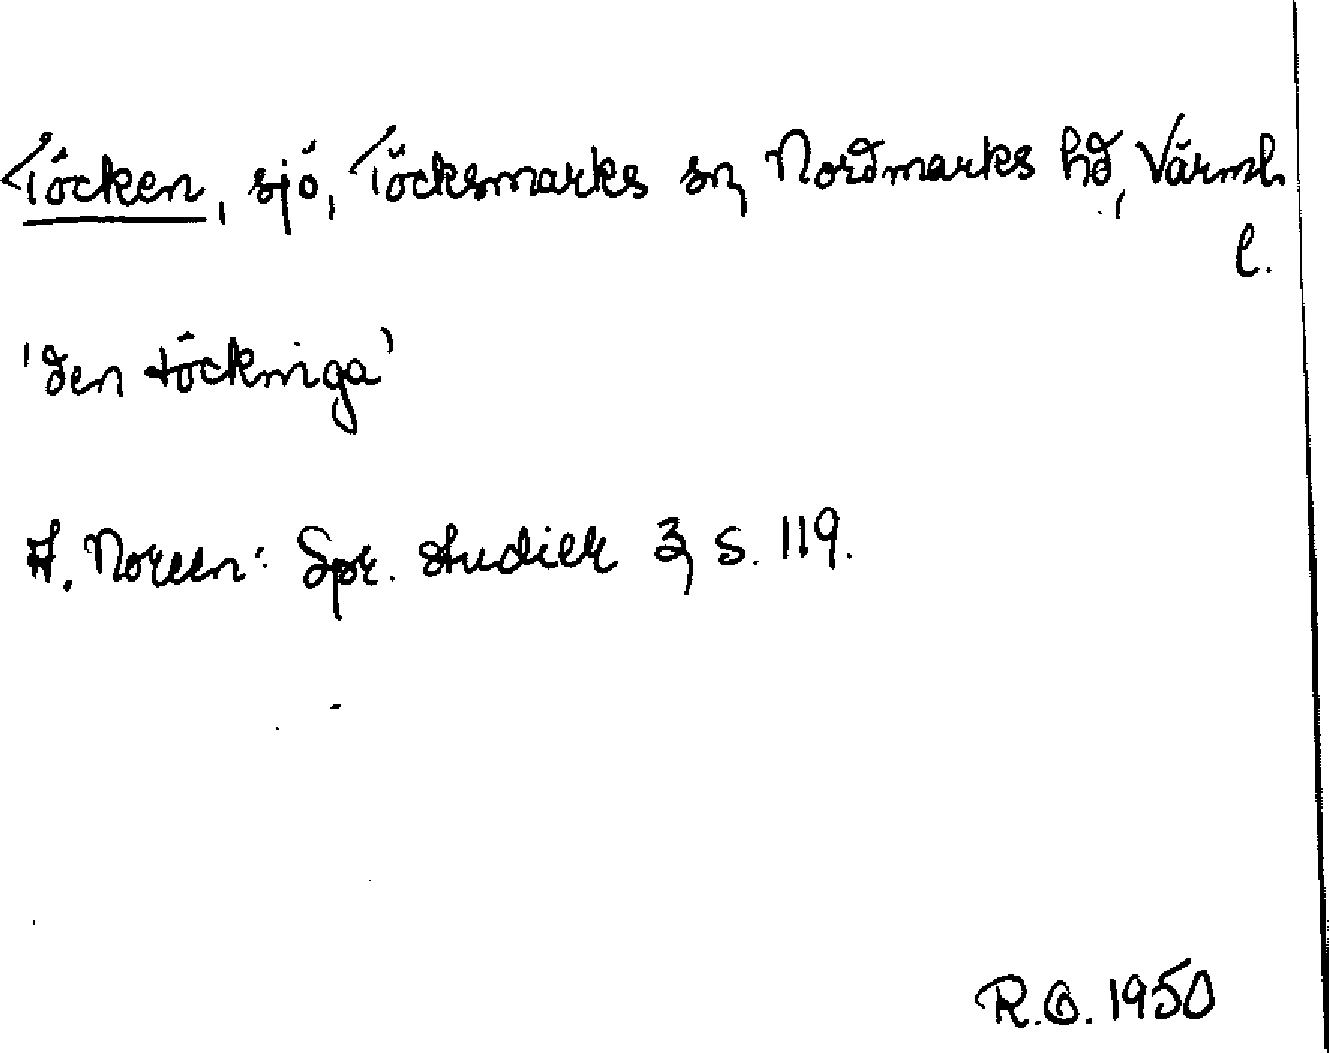 Töcken, sjö, Töcksmarks sn, Nordmarks hd, Värml.
l.
'den töckniga'
A. Noreen: Spr. studier 3, s. 119.
R.O. 1950